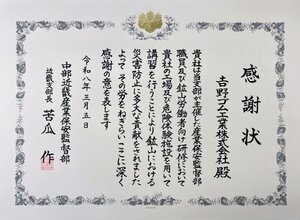 感謝状
吉野ゴム工業株式会社 殿
貴社は当支部が主催した産業保安監督部
職員及び鉱山労働者向け研修において
貴社の工場及び危険体験施設を用いて
講習を行うことにより鉱山における
災害防止に多大な貢献をされました
よって その労をねぎらい ここに深く
感謝の意を表します
令和八年三月五日
中部近畿産業保安監督部
近畿支部長 苦瓜 作